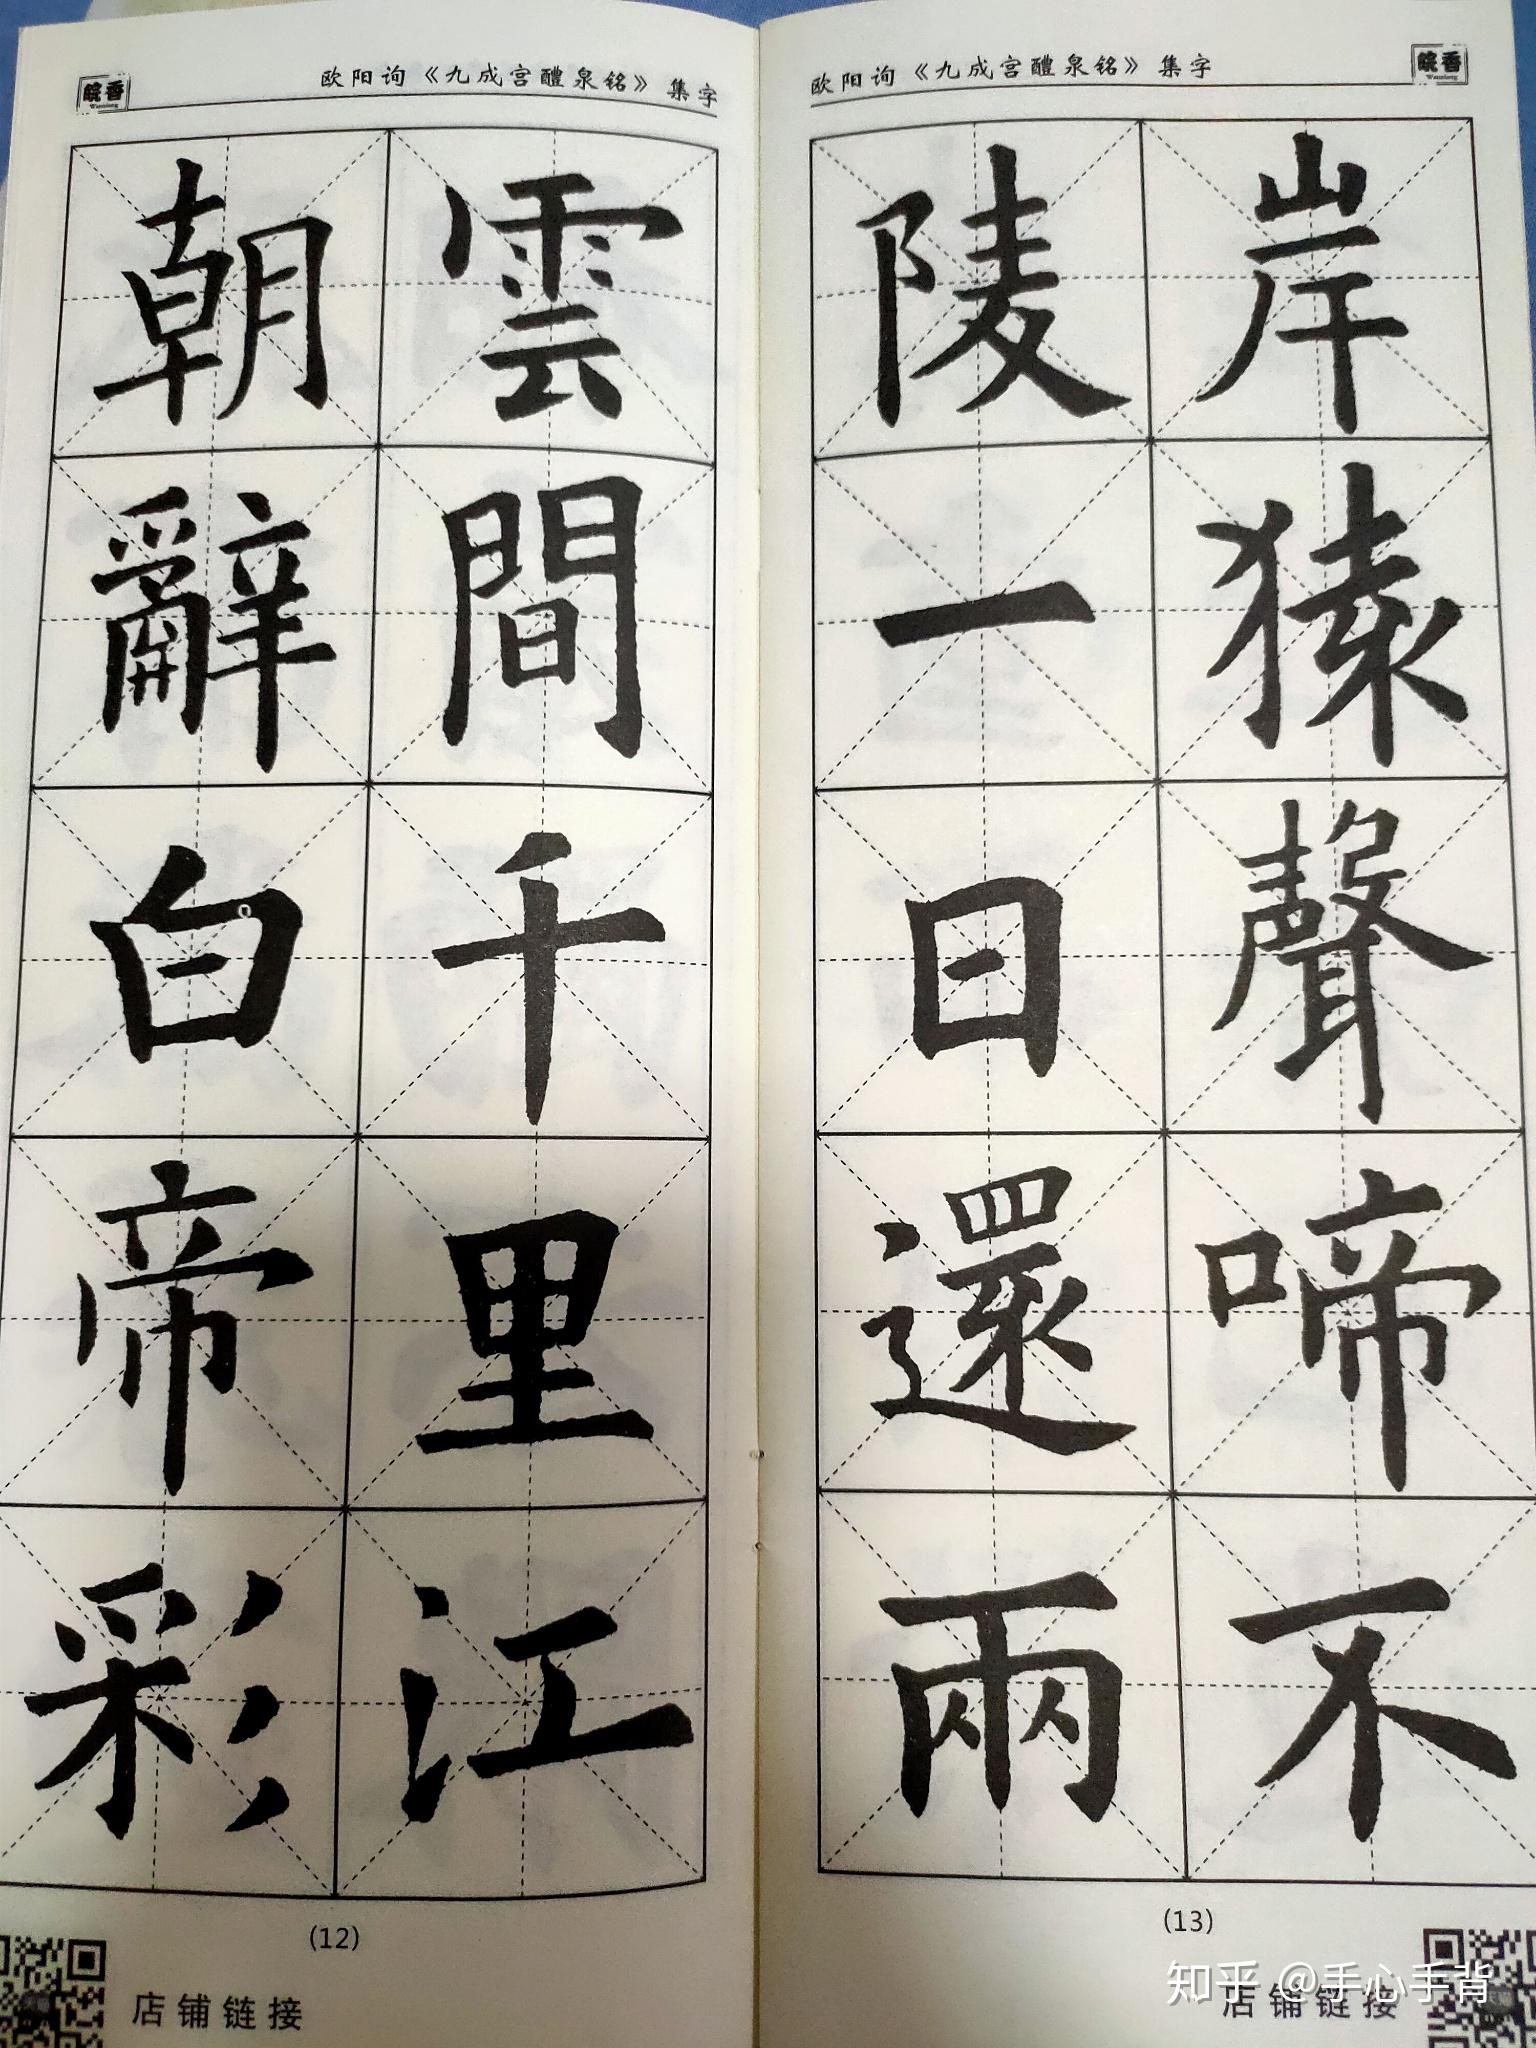 皖香
Wanxiang
欧阳询《九成宫醴泉铭》集字
朝辭白帝彩
雲間千里江
(12)
店铺链接
欧阳询《九成宫醴泉铭》集字
皖香
Wanxiang
陵一日還兩
岸猿聲啼不
(13)
店铺链接
知乎 @手心手背